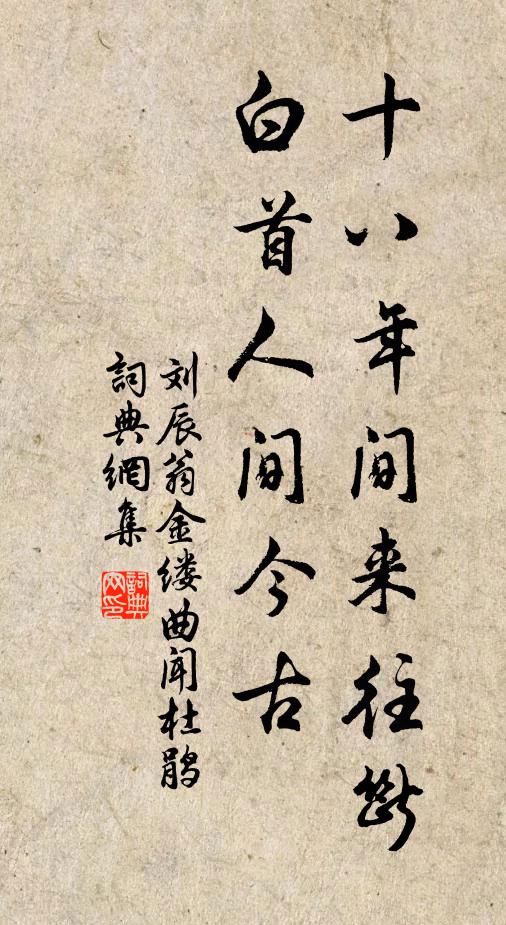 十八年间来往断
白首人间今古
刘辰翁金缕曲闻杜鹃
詞典網集
詞典网印